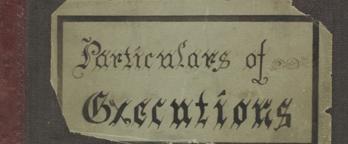 Particulars of
Executions